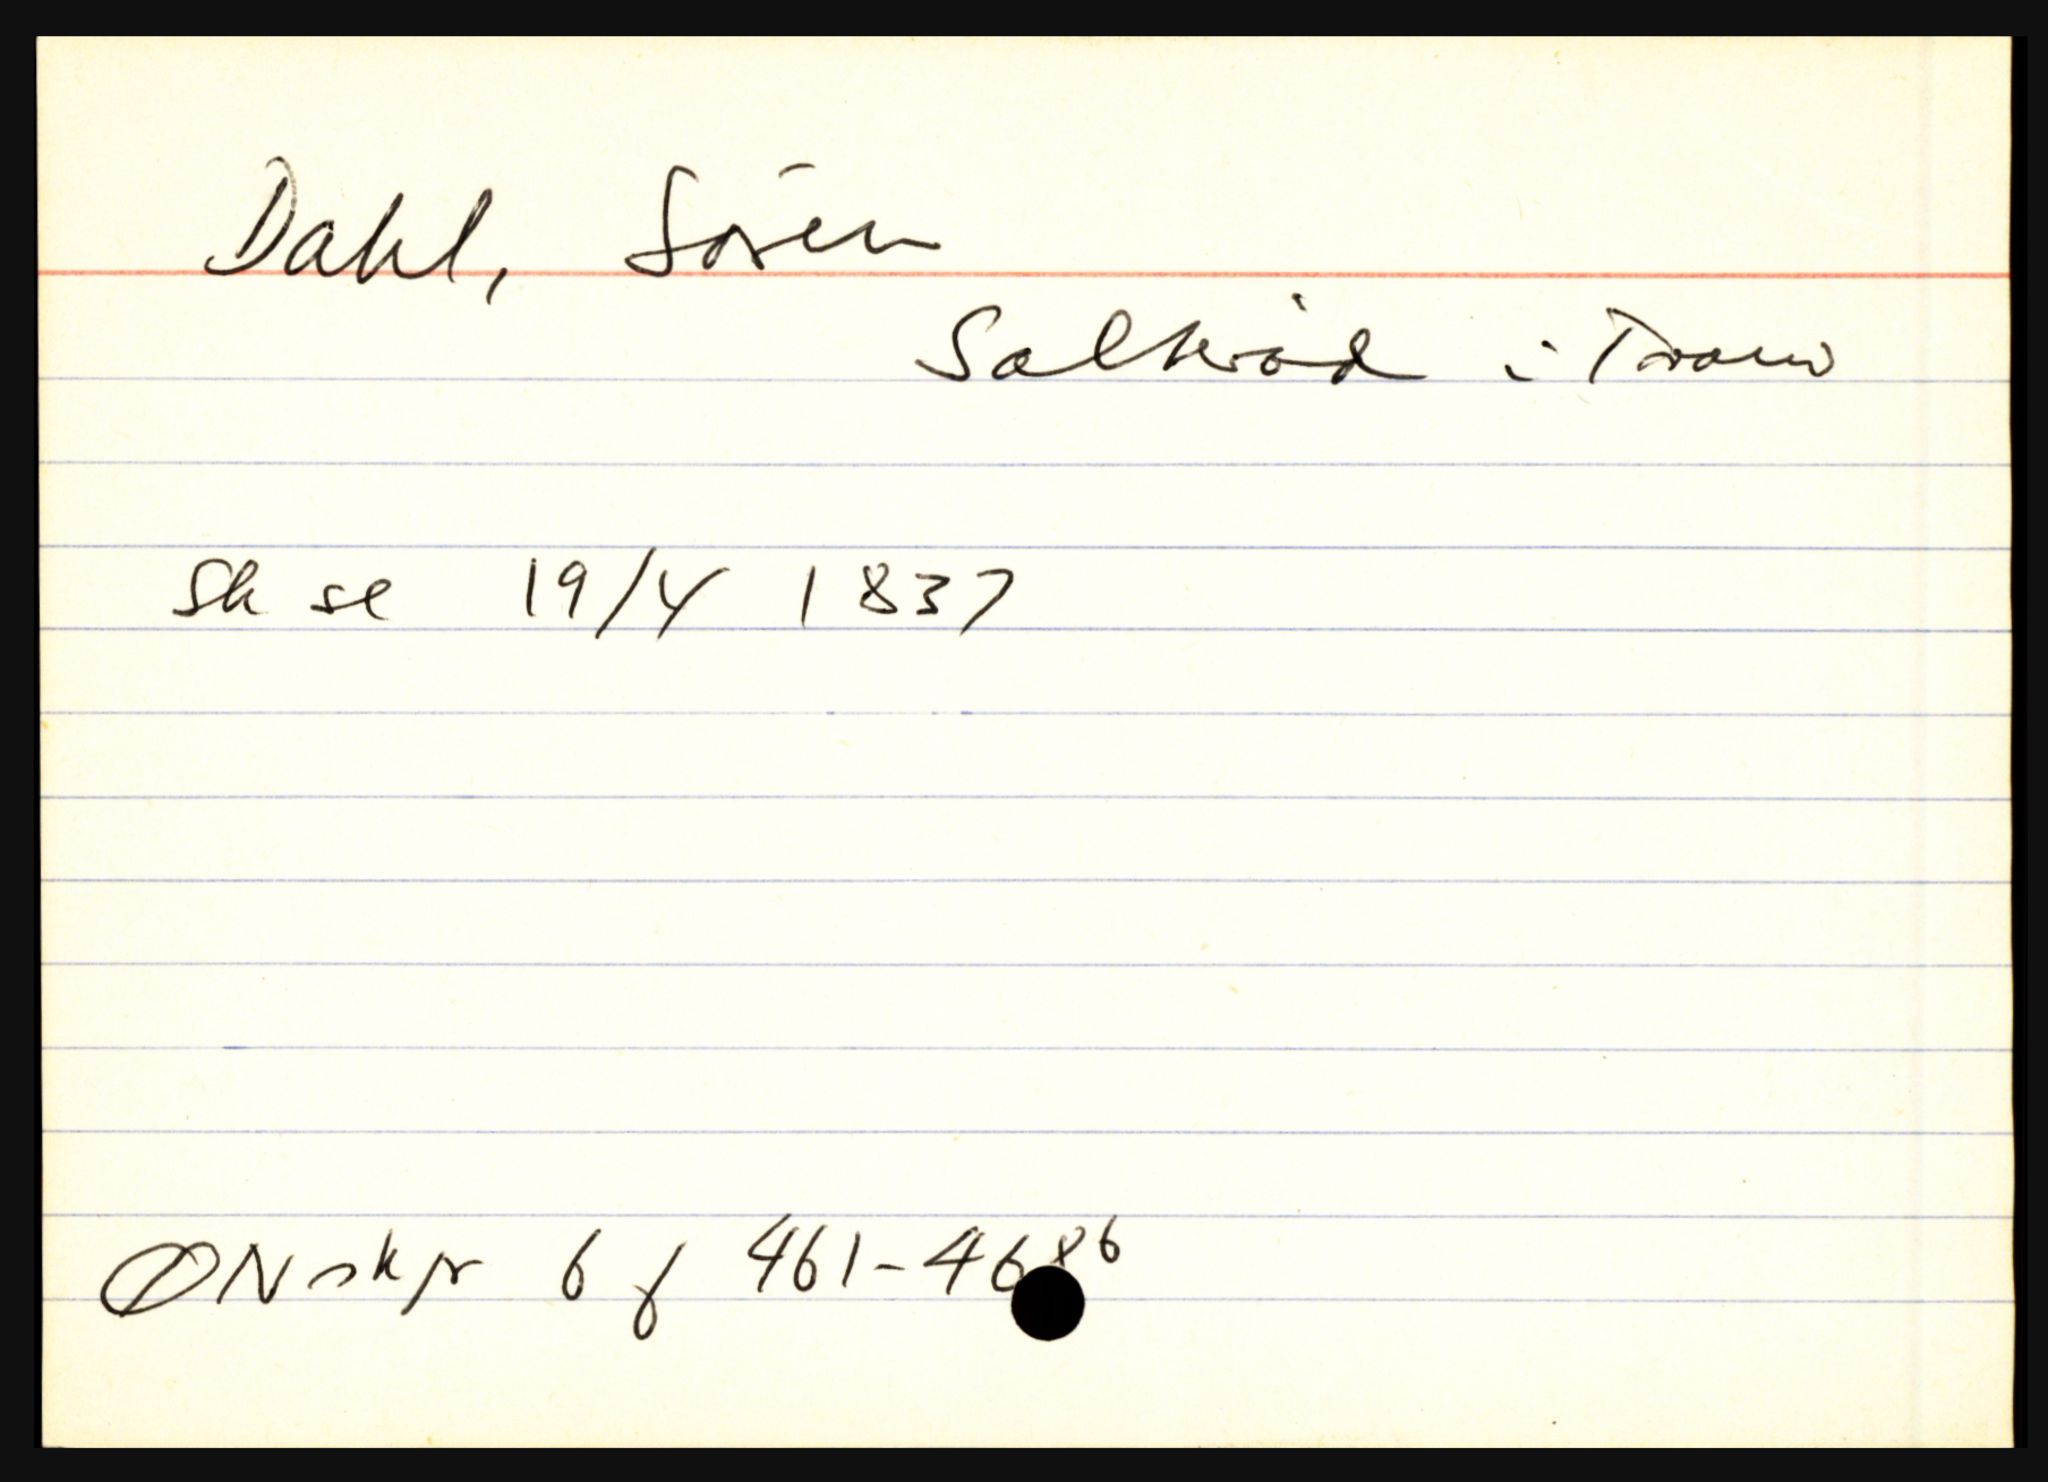 Dahl, Sören
Salteröd i Trom
Sk se 19/4 1837
ØN skpr 6 f 461-468 6